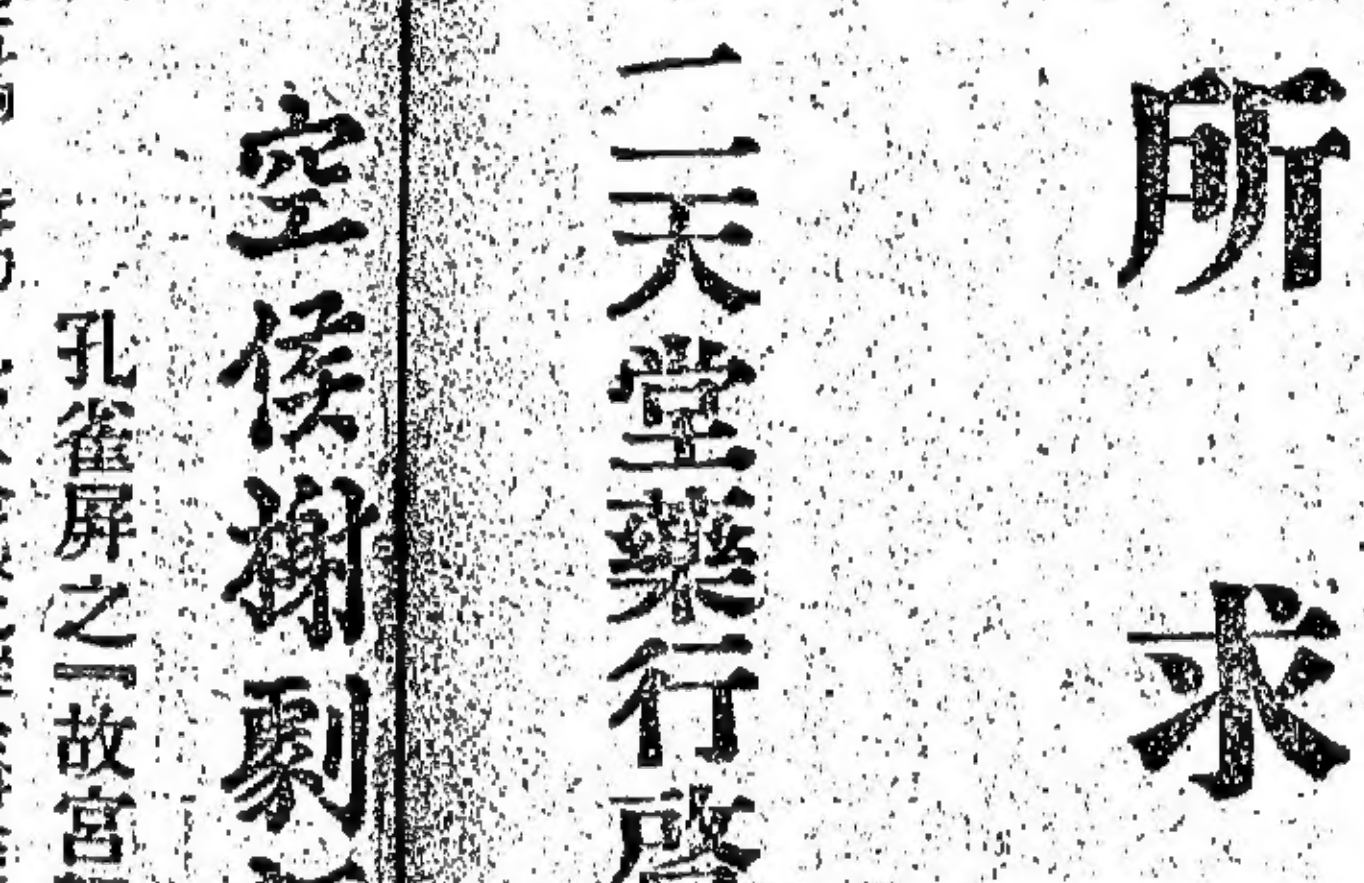 所求
二天堂藥行啓
空侯榭劇
孔雀屏之『故宮